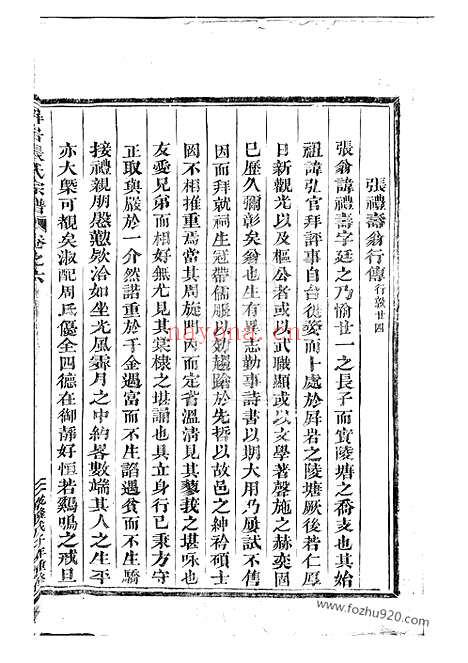 張禮壽翁行傳行敦廿四
張翁諱禮壽字廷之乃愉廿一之長子而實陵塘之喬支也其始
祖諱弘官拜評事自台徙婺而卜處於屏岩之陵塘厥後若仁厚
日新觀光以及樞公者或以武職顯或以文學著馨施之赫奕固
已歷久彌彰矣翁也生有異志勤事詩書以期大用乃屢試不售
因而拜就祠生冠帶儒服以効趨蹌於先哲以故邑之紳衿碩士
罔不相推重焉當其周旋門內而定省溫凊見其蓼莪之堪咏也
友愛兄弟而相好無尤見其棠棣之堪誦也且立身行己秉方守
正取與嚴於一介然諾重於千金遇富而不生諂遇貧而不生驕
接禮親朋慇懃欵洽如坐光風霽月之中約畧數端其人之生平
亦大槩可觀矣淑配周氏優全四德在御靜好恒若鷄鳴之戒旦
屏岩張氏宗譜 卷之六
nayona.cn
www.fozhu920.com